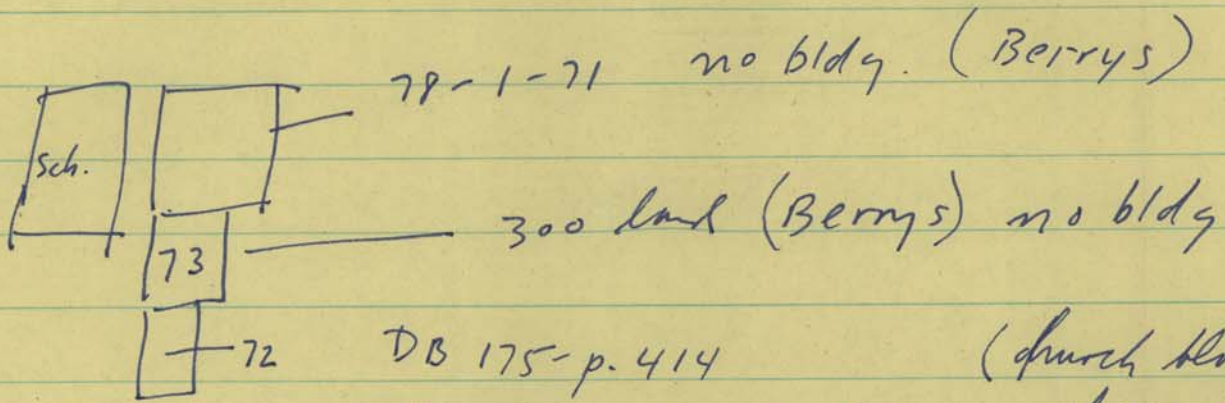 78-1-71 no bldg. (Berrys)
Sch.
300 land (Berrys) no bldg
73
72 DB 175-p. 414 (church